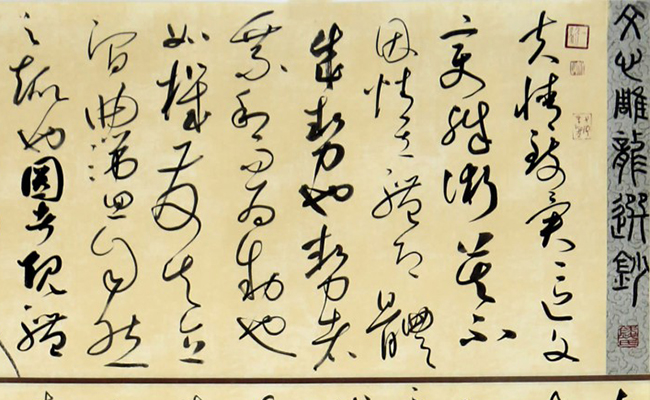 文心雕龍選鈔
夫情致異區文
變殊術莫不
因情立體即體
成勢也勢者
乘利而為制也
如機發矢直
澗曲湍回自然
之趣也圓者規體